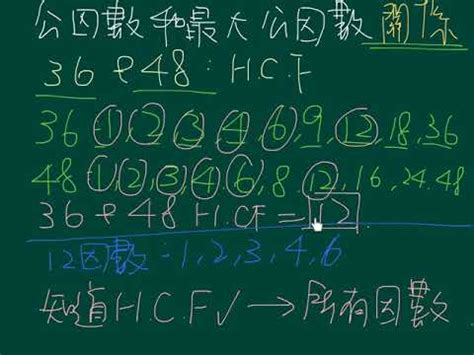 公因數和最大公因數關係
36 & 48 : H.C.F
36 1, 2, 3, 4, 6, 9, 12, 18, 36
48 1, 2, 3, 4, 6, 8, 12, 16, 24, 48
36 & 48 H.C.F = 12
12因數：1, 2, 3, 4, 6
知道H.C.F✓ → 所有因數